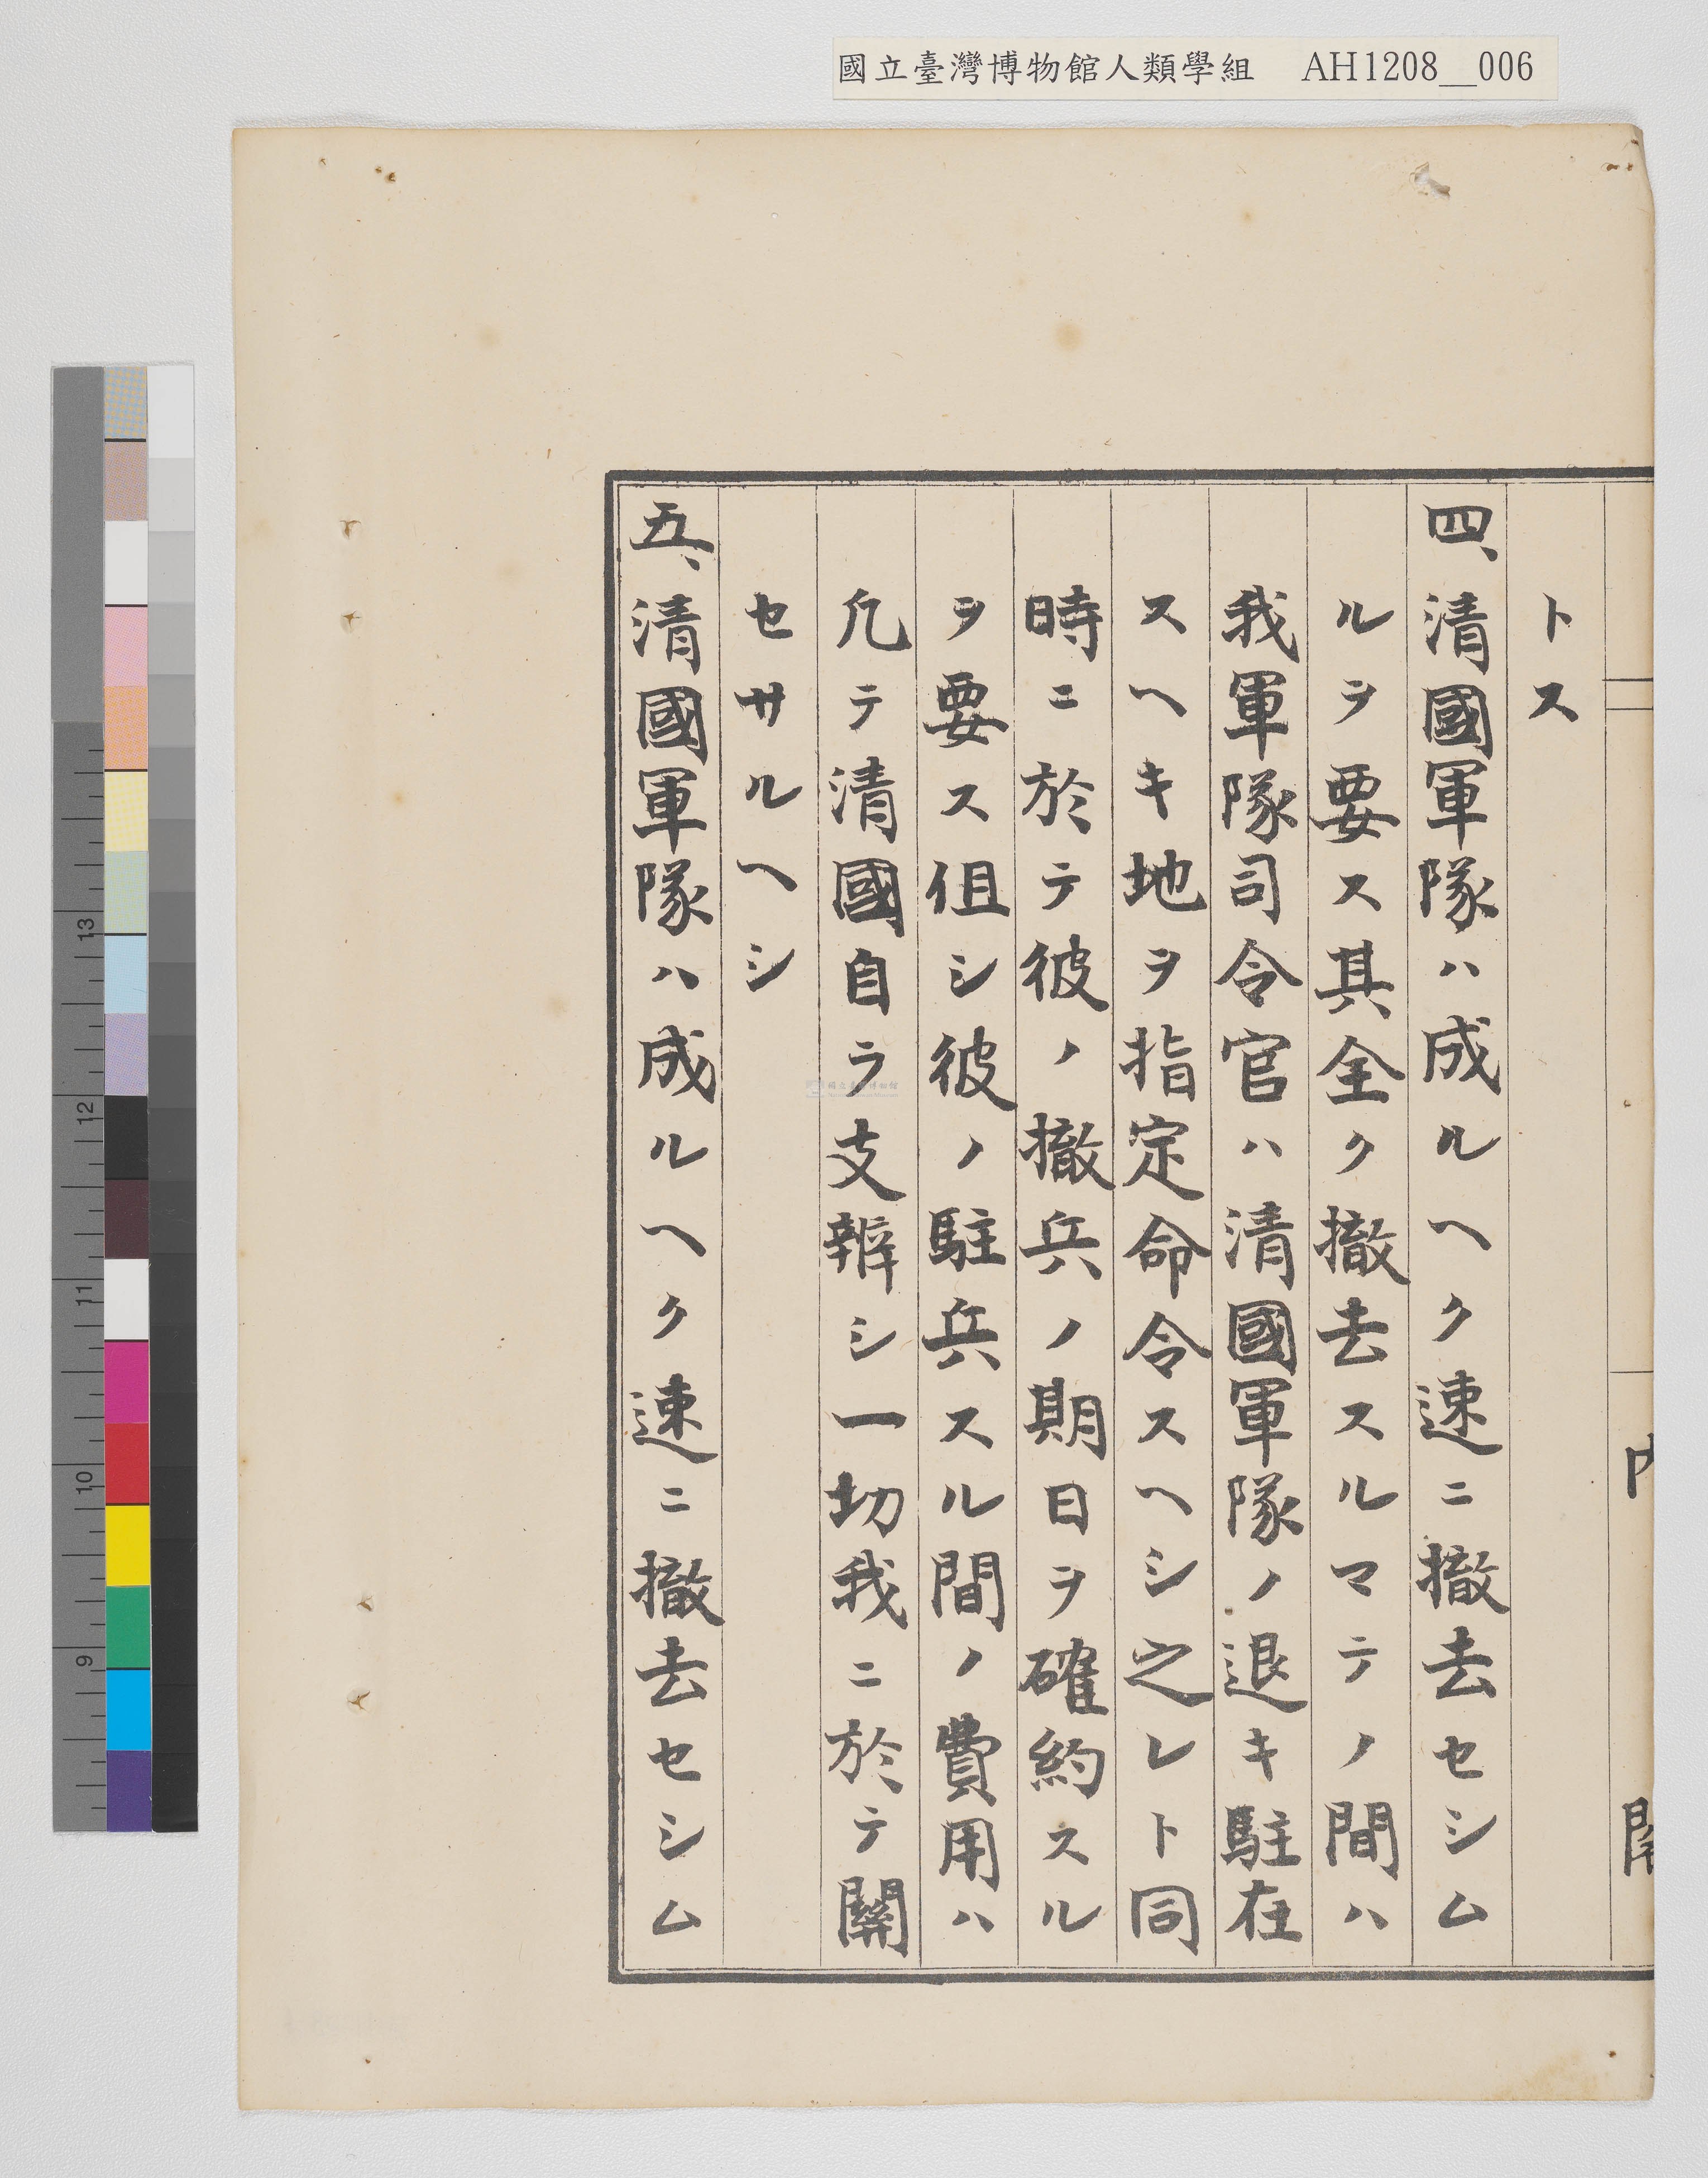 國立臺灣博物館人類學組 AH1208__006
トス
四、清國軍隊ハ成ルヘク速ニ撤去セシム
ルヲ要ス其全ク撤去スルマテノ間ハ
我軍隊司令官ハ清國軍隊ノ退キ駐在
スヘキ地ヲ指定命令スヘシ之レト同
時ニ於テ彼ノ撤兵ノ期日ヲ確約スル
ヲ要ス伹シ彼ノ駐兵スル間ノ費用ハ
凢テ清國自ラ支辨シ一切我ニ於テ關
セサルヘシ
五、清國軍隊ハ成ルヘク速ニ撤去セシム
13
12
11
10
9